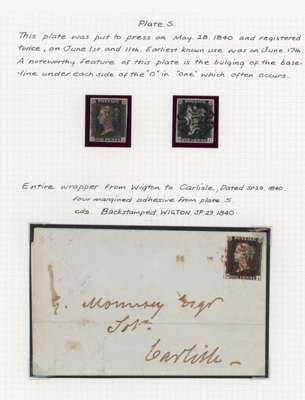 Plate 5.
This plate was put to press on May 28. 1840 and registered
twice, on June 1st and 11th. Earliest known use was on June 17th.
A noteworthy feature of this plate is the bulging of the base-
line under each side of the "O" in "one" which often occurs.
Entire wrapper from Wigton to Carlisle, Dated SP.29. 1840.
four margined adhesive from plate 5.
cds. Backstamped, WIGTON, SP. 29. 1840.
POSTAGE
POSTAGE
POSTAGE
Esqr
Carlisle